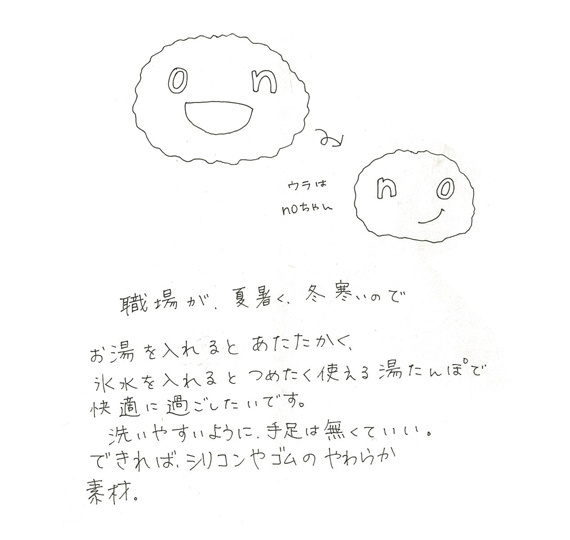 on
ウラは
noちゃん
no
職場が、夏暑く、冬寒いので
お湯を入れると あたたかく、
氷水を入れると つめたく使える 湯たんぽで
快適に過ごしたいです。
洗いやすいように、手足は無くていい。
できれば、シリコンやゴムの やわらか
素材。